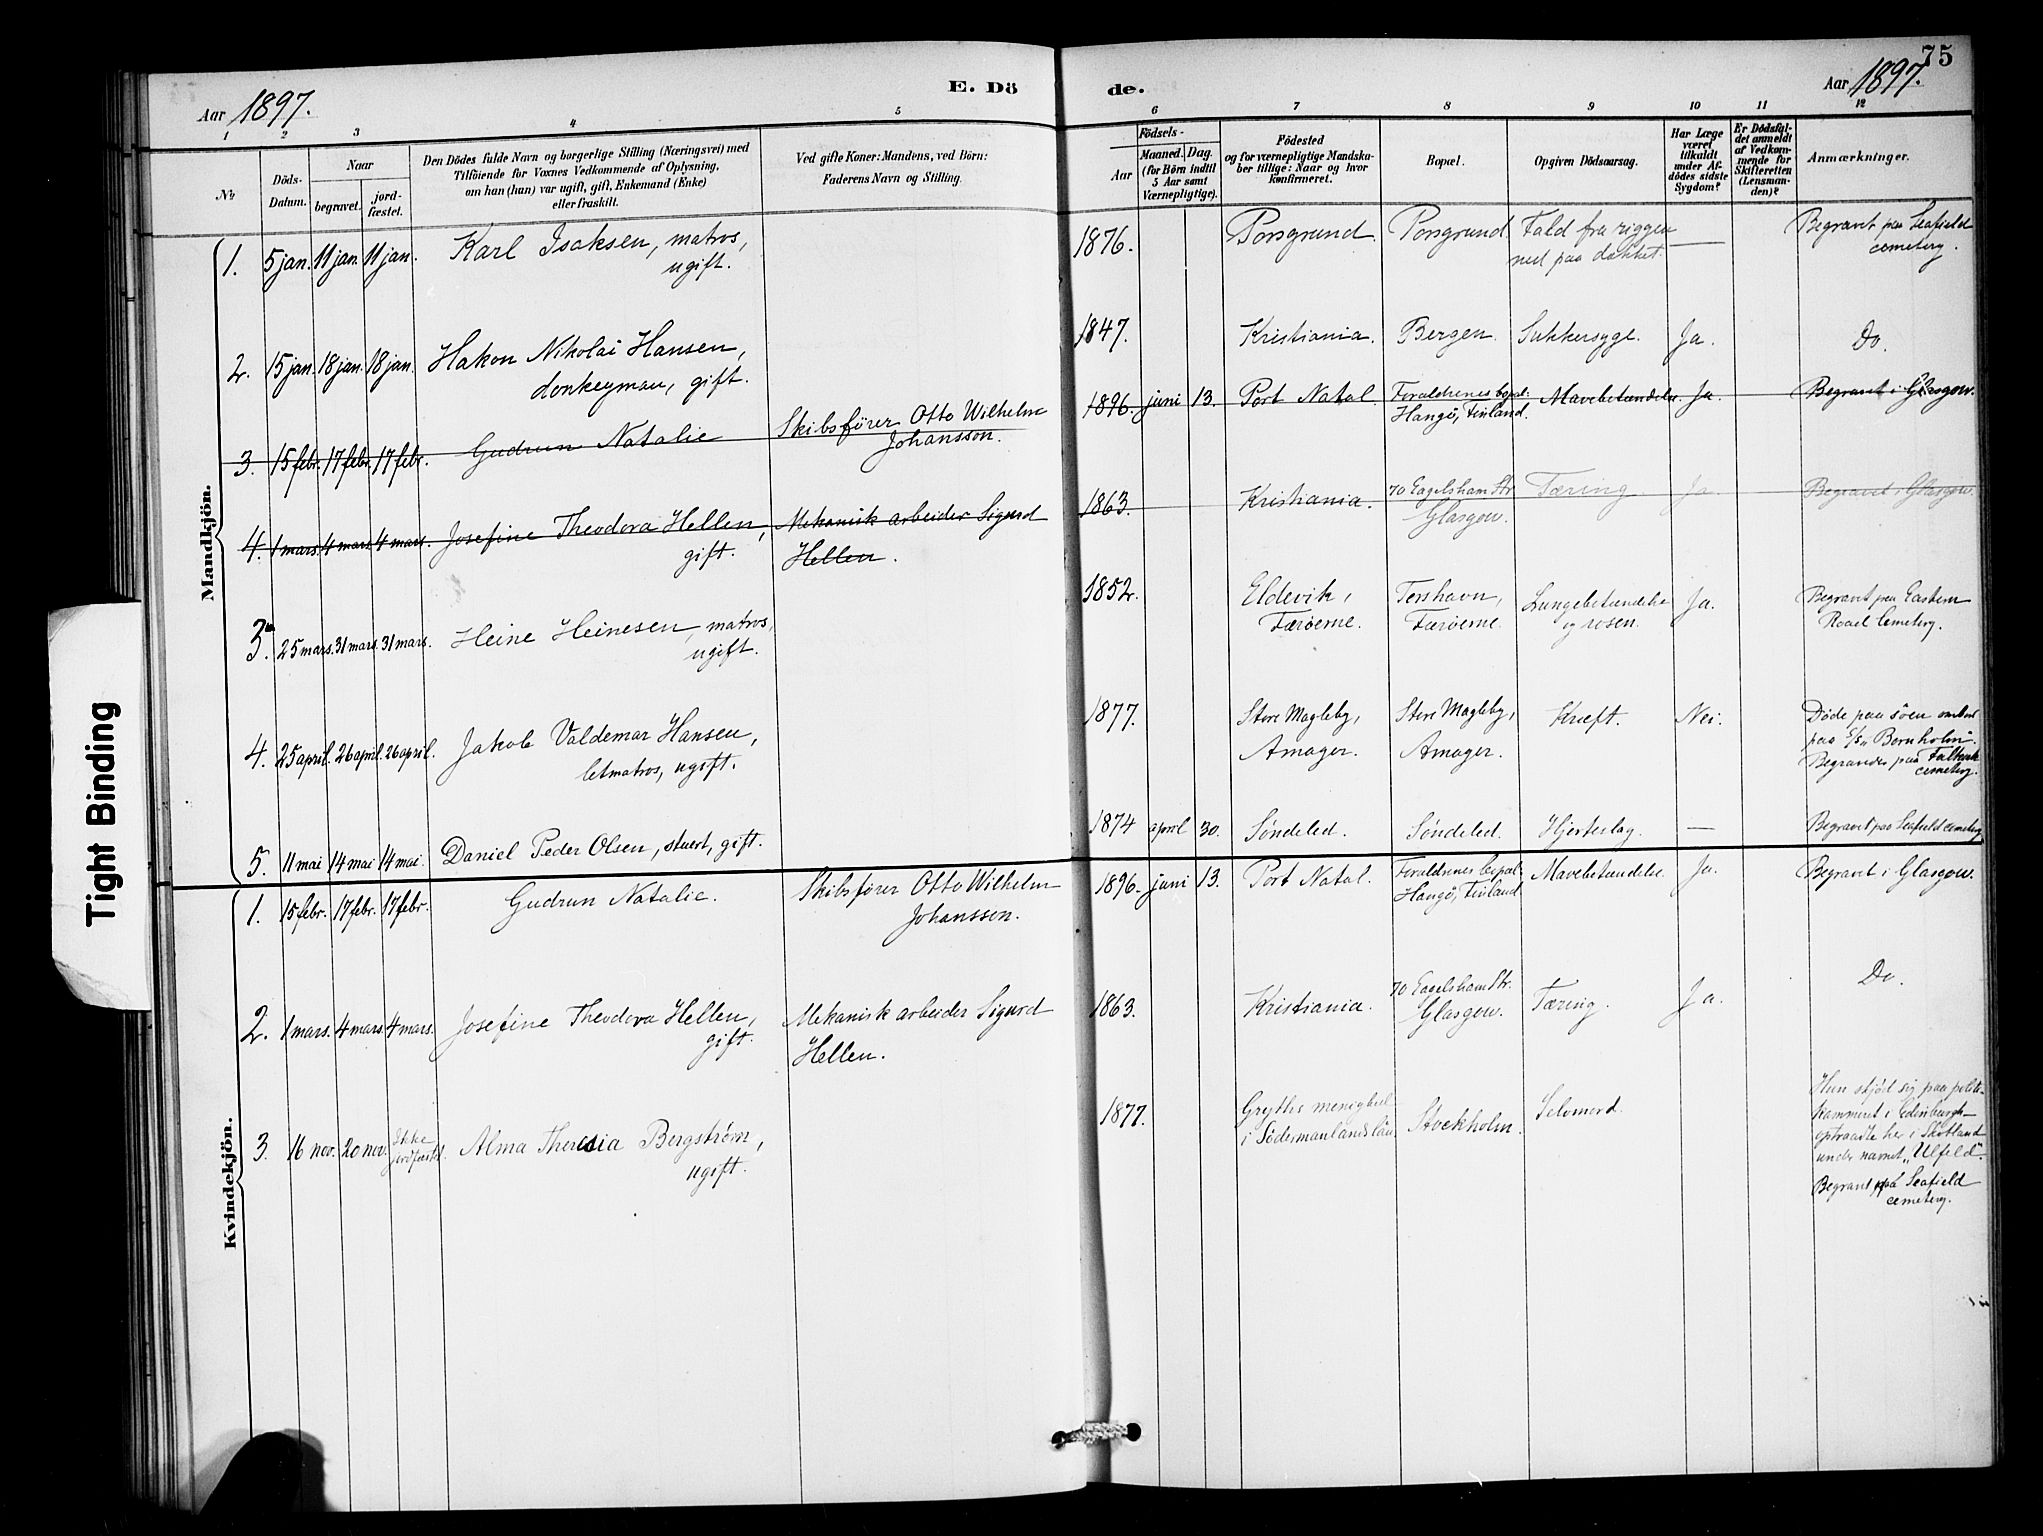 75
Aar 1897.
E. Dö
de.
Aar 1897.
1 2 3 4 5 6 7 8 9 10 11 12
No
Döds-
Datum.
Naar
begravet.
jord-
fæstet.
Den Dödes fulde Navn og borgerlige Stilling (Næringsvei) med
Tilföiende for Voxnes Vedkommende af Oplysning,
om han (hun) var ugift, gift, Enkemand (Enke)
eller fraskilt.
Ved gifte Koner: Mandens, ved Börn:
Faderens Navn og Stilling.
Födsels-
Aar
Maaned. Dag.
(for Börn indtil
5 Aar samt
Værnepligtige).
Födested
og for værnepligtige Mandska-
ber tillige: Naar og hvor
konfirmeret.
Bopæl.
Opgiven Dödsaarsag.
Har Læge
været
tilkaldt
under Af-
dödes sidste
Sygdom?
Er Dödsfal-
det anmeldt
af Vedkom-
mende for
Skifteretten
(Lensman-
den)?
Anmærkninger.
Mandkjön.
1. 5 jan. 11 jan. 11 jan. Karl Isaksen, matros,
ugift.
1876. Porsgrund. Porsgrund Fald fra riggen
ned paa dækket. — Begravet paa Seafield
cemetery.
2. 15 jan. 18 jan. 18 jan. Hakon Nikolai Hansen,
donkeyman, gift.
1847. Kristiania. Bergen. Sukkersyge. Ja. Do.
3. 15 febr. 17 febr. 17 febr. Gudrun Natalie Skibsfører Otto Wilhelm
Johansson.
1896. juni 13. Port Natal. Forældrenes bopæl:
Hangö, Finland. Mavebetændelse. Ja. Begravet i Glasgow.
4. 1 mars. 4 mars. 4 mars. Josefine Theodora Hellen,
gift.
Mekanisk arbeider Sigurd
Hellen.
1863. Kristiania. 70 Eagelsham Str.
Glasgow. Tæring. Ja Begravet i Glasgow.
3. 25 mars. 31 mars. 31 mars. Heine Heinesen, matros,
ugift.
1852. Eldevik,
Færøerne. Torshavn,
Færøerne. Lungebetændelse
og rosen. Ja. Begravet paa Eastern
Road Cemetery.
4. 25 april. 26 april. 26 april. Jakob Valdemar Hansen,
letmatros, ugift.
1877. Store Magleby,
Amager. Store Magleby,
Amager. Kræft. Nei. Døde paa søen ombord
paa S/S „Bornholm".
Begravdes paa Falkirk
cemetery.
5. 11 mai 14 mai 14 mai. Daniel Peder Olsen, stuert, gift.
1874 april 30. Søndeled. Søndeled. Hjerteslag. — Begravet paa Seafield cemetery
Kvindekjön.
1. 15 febr. 17 febr. 17 febr. Gudrun Natalie. Skibsfører Otto Wilhelm
Johansson.
1896. juni 13. Port Natal. Forældrenes bopæl
Hangö, Finland Mavebetændelse. Ja. Begravet i Glasgow.
2. 1 mars. 4 mars. 4 mars. Josefine Theodora Hellen,
gift.
Mekanisk arbeider Sigurd
Hellen.
1863. Kristiania. 70 Eagelsham Str.
Glasgow. Tæring. Ja. Do.
3. 16 nov. 20 nov. Ikke
jordfæstet. Alma Theresia Bergstrøm,
ugift.
1877. Gryths menighed
i Södermanlands län Stockholm. Selvmord. Hun skjød sig paa politi-
kammeret i Edinburgh–
optraadte her i Skotland
under navnet „Ulfeld".
Begravet paa Seafield
cemetery.
Tight Binding